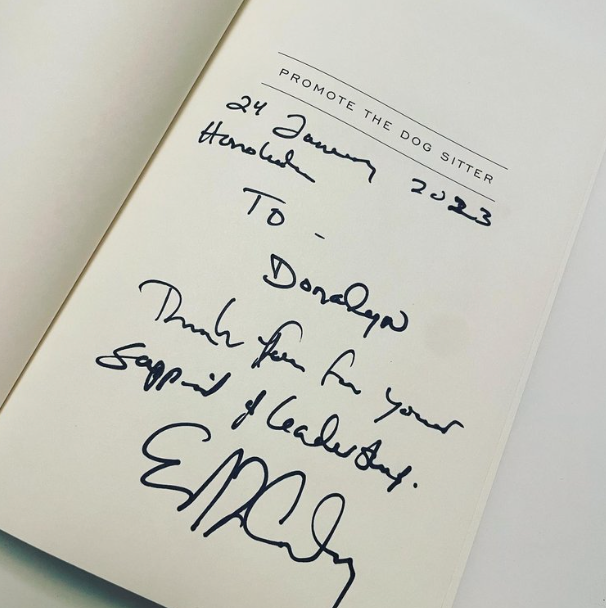 PROMOTE THE DOG SITTER
24 January 2023
Honolulu
TO -
Donalyn
Thank you for your
support of leadership.